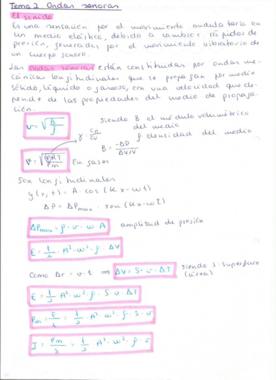 Tema 2 Ondas sonoras
El sonido
Es una sensación por el movimiento ondulatorio en
un medio elástico, debido a cambios rápidos de
presión, generados por el movimiento vibratorio de
un cuerpo sonoro.
Las ondas sonoras están constituidas por ondas me-
cánicas longitudinales que se propagan por medio
sólido, líquido o gaseoso, con una velocidad que de-
pende de las propiedades del medio de propaga-
ción.
v = √(B/ρ) siendo B el módulo volumétrico
del medio
ρ densidad del medio
γ = Cp/Cv
B = -ΔP/(ΔV/V)
v = √(γRT/Pm) En gases
Son longitudinales
y(x,t) = A · cos(Kx - ωt)
ΔP = ΔPmax · sen(Kx - ωt)
ΔPmax = ρ · v · ω A amplitud de presión
E = 1/2 A² · ω² · ρ · ΔV
Como Δr = v · t ⇒ ΔV = S · v · ΔT siendo S superficie
E = 1/2 A² · ω² · ρ · S · v · ΔT
Pm = E/t = 1/2 A² · ω² · ρ · S · v
I = Pm/S = 1/2 A² · ω² · ρ · v